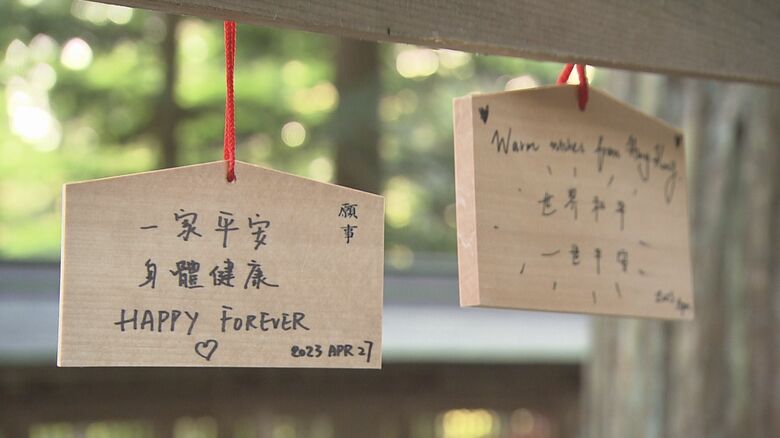 願事
一家平安
身體健康
HAPPY FOREVER
2023 APR 27
Warm wishes from Hong Kong
世界和平
一世平安